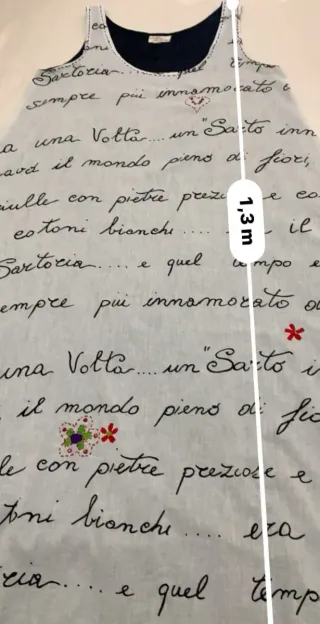 co
oni
Sartoria.... quel tempo
sempre più innamorato
a una Volta.... un "Sarto inn
il mondo pieno di fiori,
ulle con pietre prezi e co
cotoni bianchi.... il
Sartoria.... e quel tempo e
empre più innamorato d
1,3 m
una Volta.... un "Sarto i
il mondo pieno di fio
le con pietre preziose e
toni bianchi.... era
ria.... e quel temp